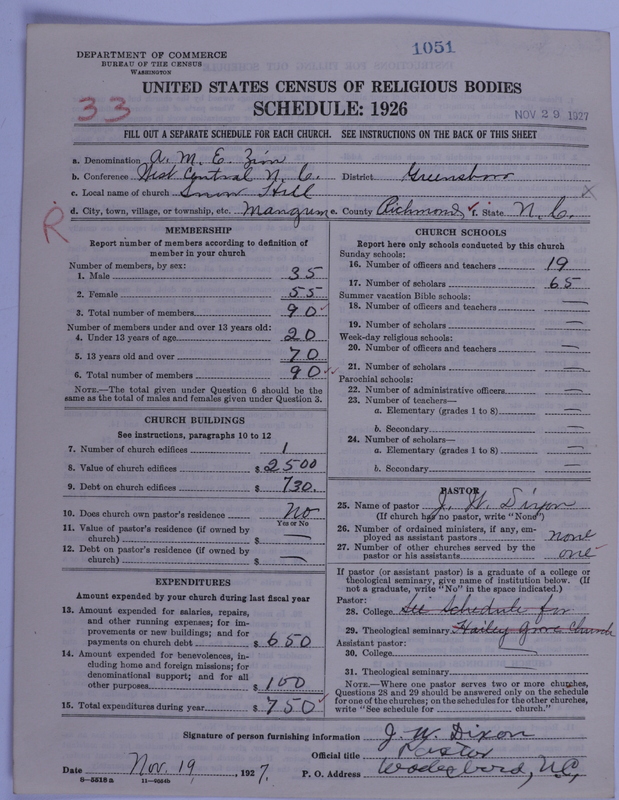 1051
DEPARTMENT OF COMMERCE
BUREAU OF THE CENSUS
WASHINGTON
UNITED STATES CENSUS OF RELIGIOUS BODIES
SCHEDULE: 1926
33
NOV 29 1927
FILL OUT A SEPARATE SCHEDULE FOR EACH CHURCH. SEE INSTRUCTIONS ON THE BACK OF THIS SHEET
a. Denomination A. M. E. Zion
b. Conference West Central N. C. District Greensboro
c. Local name of church Snow Hill
d. City, town, village, or township, etc. Mangum e. County Richmond f. State N. C.
R
MEMBERSHIP
Report number of members according to definition of member in your church
Number of members, by sex:
1. Male 35
2. Female 55
3. Total number of members 90
Number of members under and over 13 years old:
4. Under 13 years of age 20
5. 13 years old and over 70
6. Total number of members 90
NOTE.—The total given under Question 6 should be the
same as the total of males and females given under Question 3.
CHURCH BUILDINGS
See instructions, paragraphs 10 to 12
7. Number of church edifices 1
8. Value of church edifices $2500
9. Debt on church edifices $730.
10. Does church own pastor's residence No
Yes or No
11. Value of pastor's residence (if owned by
church) $ —
12. Debt on pastor's residence (if owned by
church) $ —
EXPENDITURES
Amount expended by your church during last fiscal year
13. Amount expended for salaries, repairs,
and other running expenses; for im-
provements or new buildings; and for
payments on church debt $650
14. Amount expended for benevolences, in-
cluding home and foreign missions; for
denominational support; and for all
other purposes $100
15. Total expenditures during year $750
CHURCH SCHOOLS
Report here only schools conducted by this church
Sunday schools:
16. Number of officers and teachers 19
17. Number of scholars 65
Summer vacation Bible schools:
18. Number of officers and teachers —
19. Number of scholars —
Week-day religious schools:
20. Number of officers and teachers —
21. Number of scholars —
Parochial schools:
22. Number of administrative officers —
23. Number of teachers—
a. Elementary (grades 1 to 8) —
b. Secondary —
24. Number of scholars—
a. Elementary (grades 1 to 8) —
b. Secondary —
PASTOR
25. Name of pastor J. W. Dixon
(If church has no pastor, write "None")
26. Number of ordained ministers, if any, em-
ployed as assistant pastors none
27. Number of other churches served by the
pastor or his assistants one
If pastor (or assistant pastor) is a graduate of a college or
theological seminary, give name of institution below. (If
not a graduate, write "No" in the space indicated.)
Pastor:
28. College See Schedule for
29. Theological seminary Hailey Grove Church
Assistant pastor:
30. College
31. Theological seminary
NOTE.—Where one pastor serves two or more churches,
Questions 28 and 29 should be answered only on the schedule
for one of the churches; on the schedules for the other churches,
write "See schedule for church."
Signature of person furnishing information J. W. Dixon
Official title Pastor
Date Nov. 19, 1927. P. O. Address Wadesboro, N.C.